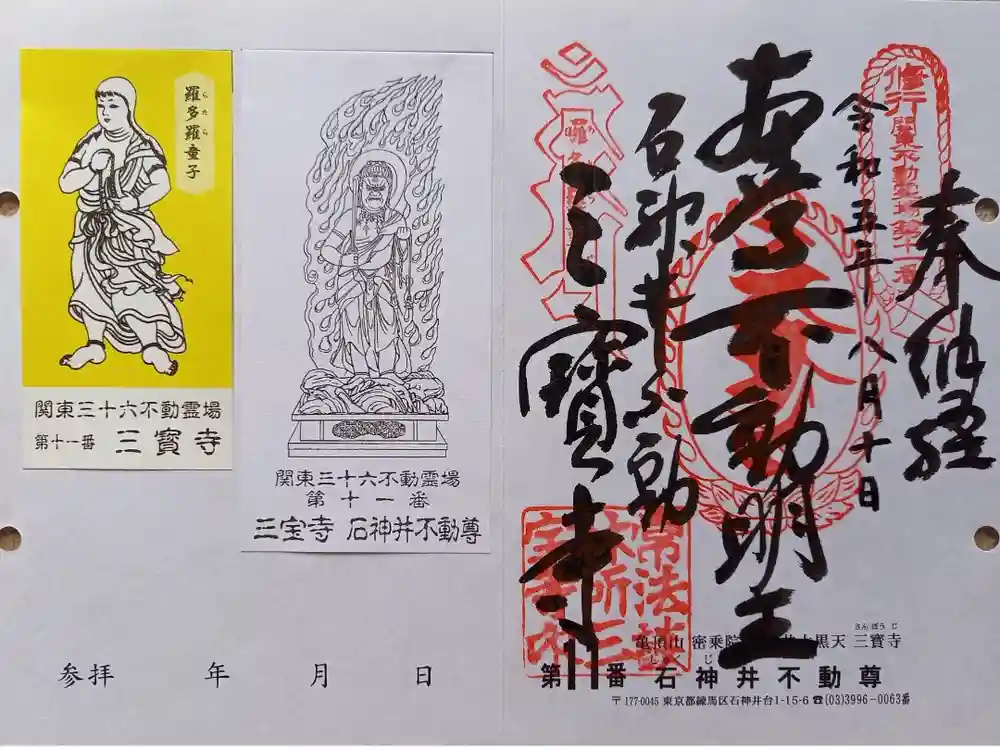 羅多羅童子
らたら
関東三十六不動霊場
第十一番 三寳寺
関東三十六不動霊場
第十一番
三宝寺 石神井不動尊
参拝 年 月 日
奉納経
修行関東不動霊場第十一番
令和五年八月十日
不動明王
石神井不動
三寳寺
さんぽうじ
亀頂山 密乗院 大黒天 三寳寺
しゃくじい
第11番 石神井不動尊
〒177-0045 東京都練馬区石神井台1-15-6 ☎(03)3996-0063番